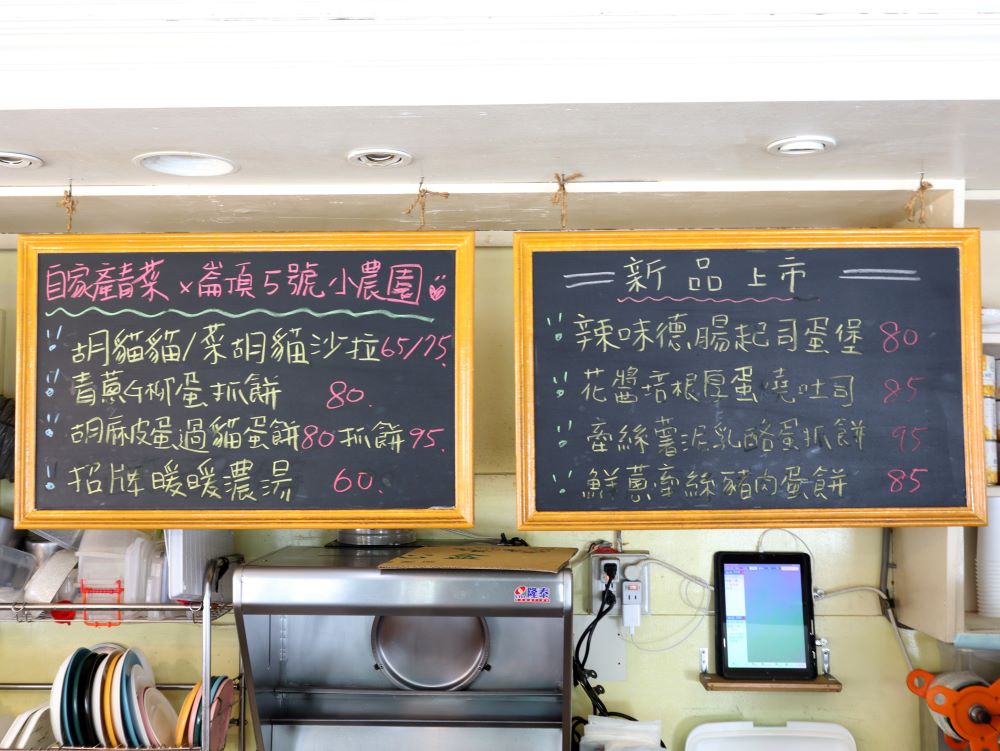 自家產青菜×崙頂5號小農園
胡貓貓/菜胡貓沙拉65/75.
青蔥4柳蛋抓餅 80.
胡麻皮蛋過貓蛋餅80抓餅95.
招牌暖暖濃湯 60.
新品上市
辣味德腸起司蛋堡 80
花醬培根厚蛋燒吐司 85
牽絲薯泥乳酪蛋抓餅 95
鮮蔥牽絲豬肉蛋餅 85
隆泰